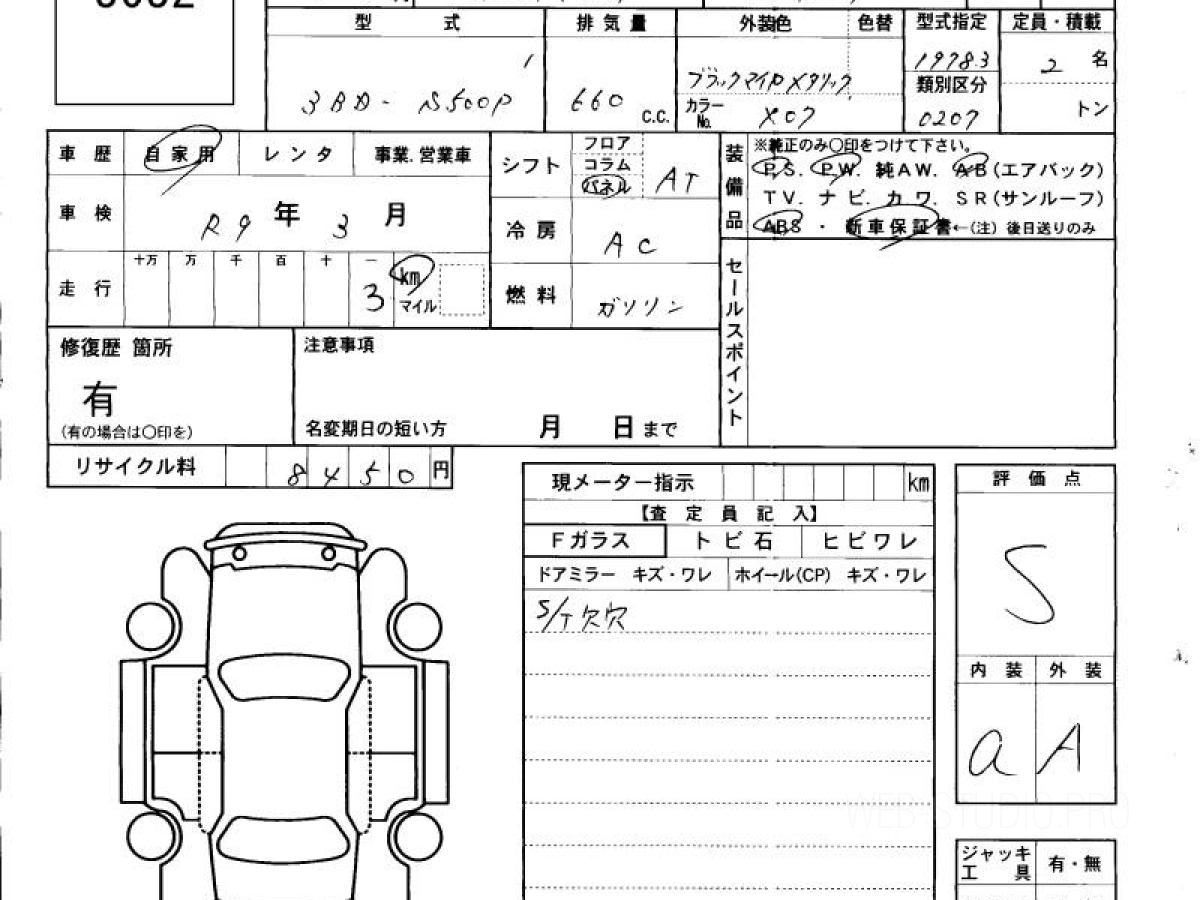 型 式 排気量 外装色 色替 型式指定 定員・積載
3BD- S500P 660 c.c. ブラックマイカメタリック 19783 2 名
カラーNo. X07 類別区分 0207 トン
車歴 自家用 レンタ 事業.営業車
車検 R9年 3月
走行 十万 万 千 百 十 一 3 km マイル
シフト フロア コラム パネル AT
冷房 AC
燃料 ガソリン
装備品 ※純正のみ〇印をつけて下さい。
P.S. P.W. 純AW. AB(エアバック)
TV. ナビ. カワ. SR(サンルーフ)
ABS ・ 新車保証書←(注) 後日送りのみ
セールスポイント
修復歴 箇所
有
(有の場合は〇印を)
注意事項
名変期日の短い方 月 日まで
リサイクル料 8450円
現メーター指示 km
【査定員記入】
Fガラス トビ石 ヒビワレ
ドアミラー キズ・ワレ ホイール(CP) キズ・ワレ
S/T欠穴
評価点
S
内装 外装
a A
ジャッキ
工具 有・無
WEB-STUDIO.PRO